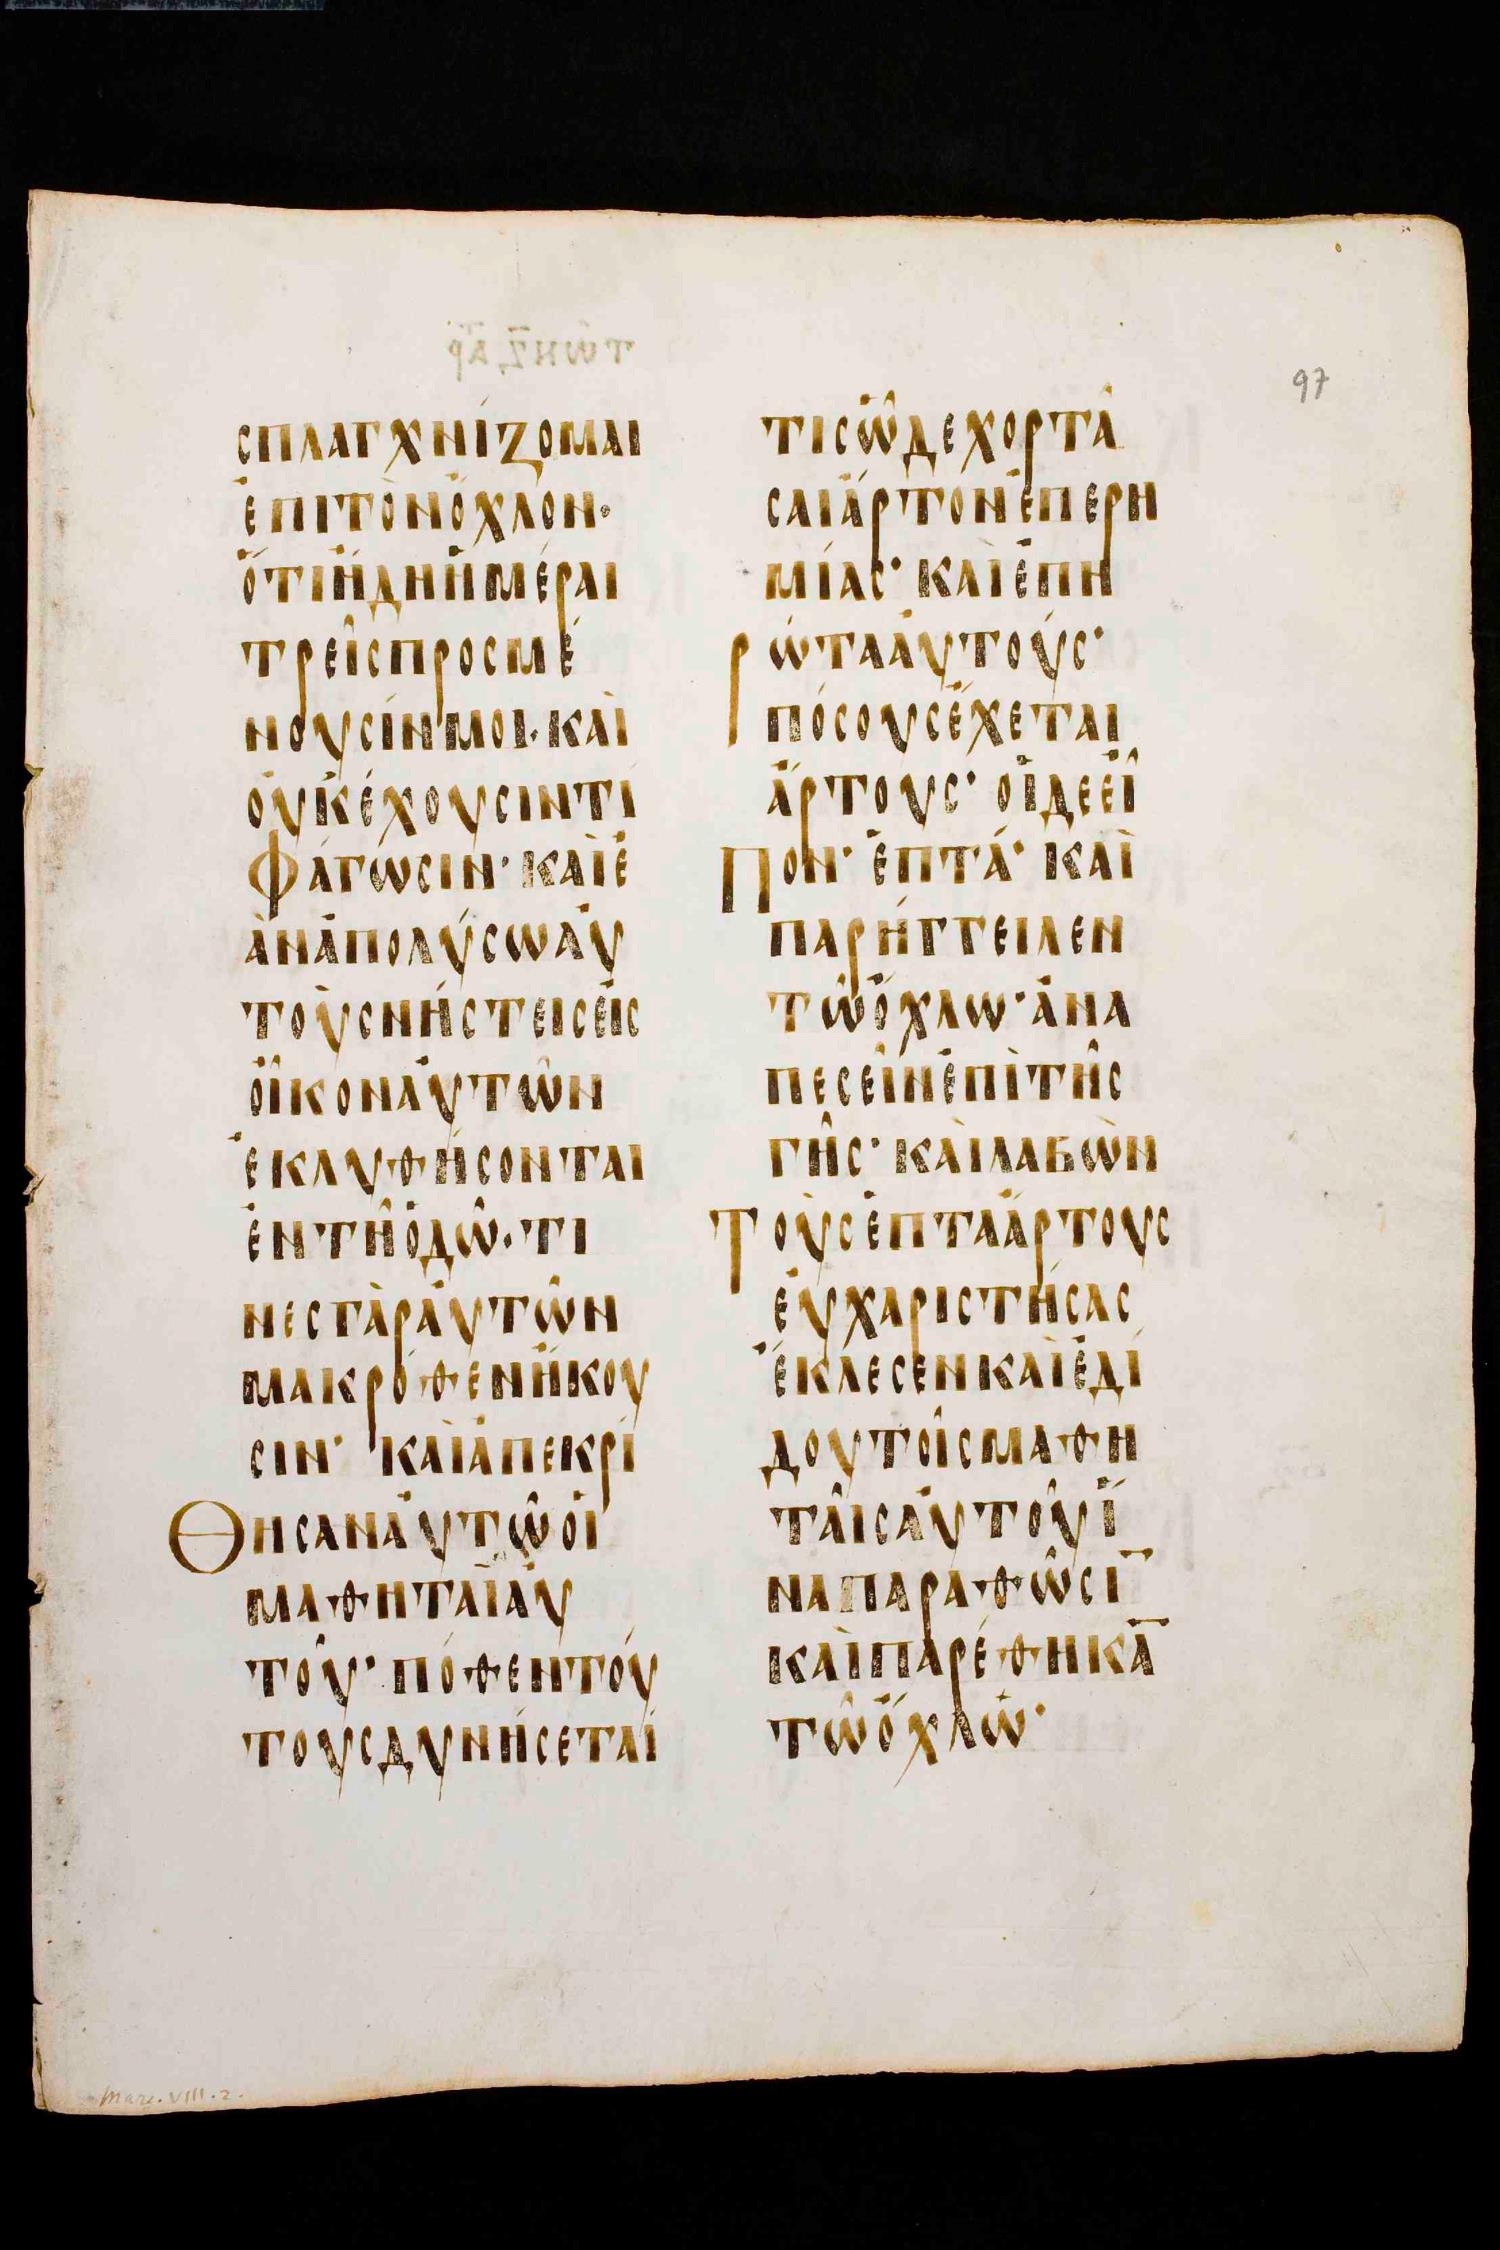 97
σπλαγχνίζομαι
ἐπιτὸνὄχλον·
ὅτιἤδηἡμέραι
τρεῖςπροσμέ
νουσίνμοι·καὶ
οὐκἔχουσιντί
φάγωσιν·καὶἐ
ὰνἀπολύσωαὐ
τοὺςνήστειςεἰς
οἶκοναὐτῶν
ἐκλυθήσονται
ἐντῆὁδῶ·τι
νεςγὰραὐτῶν
μακρόθενἥκου
σιν· καὶἀπεκρί
θησαναὐτῶοἱ
μαθηταὶαὐ
τοῦ·πόθεντού
τουςδυνήσεταί
τιςὧδεχορτά
σαιἄρτονἐπερη
μίας·καὶἐπη
ρώτααὐτούς·
πόσουςἔχεται
ἄρτους·οἱδεεἶ
πον·ἑπτά·καὶ
παρήγγειλεν
τῶὄχλω·ἀνα
πεσεῖνἐπὶτῆς
γῆς·καὶλαβὼν
τοὺςἑπταἄρτους
εὐχαριστήσας
ἔκλεσενκαὶἐδί
δουτοῖςμαθη
ταῖςαὐτοῦἵ
ναπαραθῶσῑ
καὶπαρέθηκᾱ
τῶὄχλω·
Marc. VIII. 2.